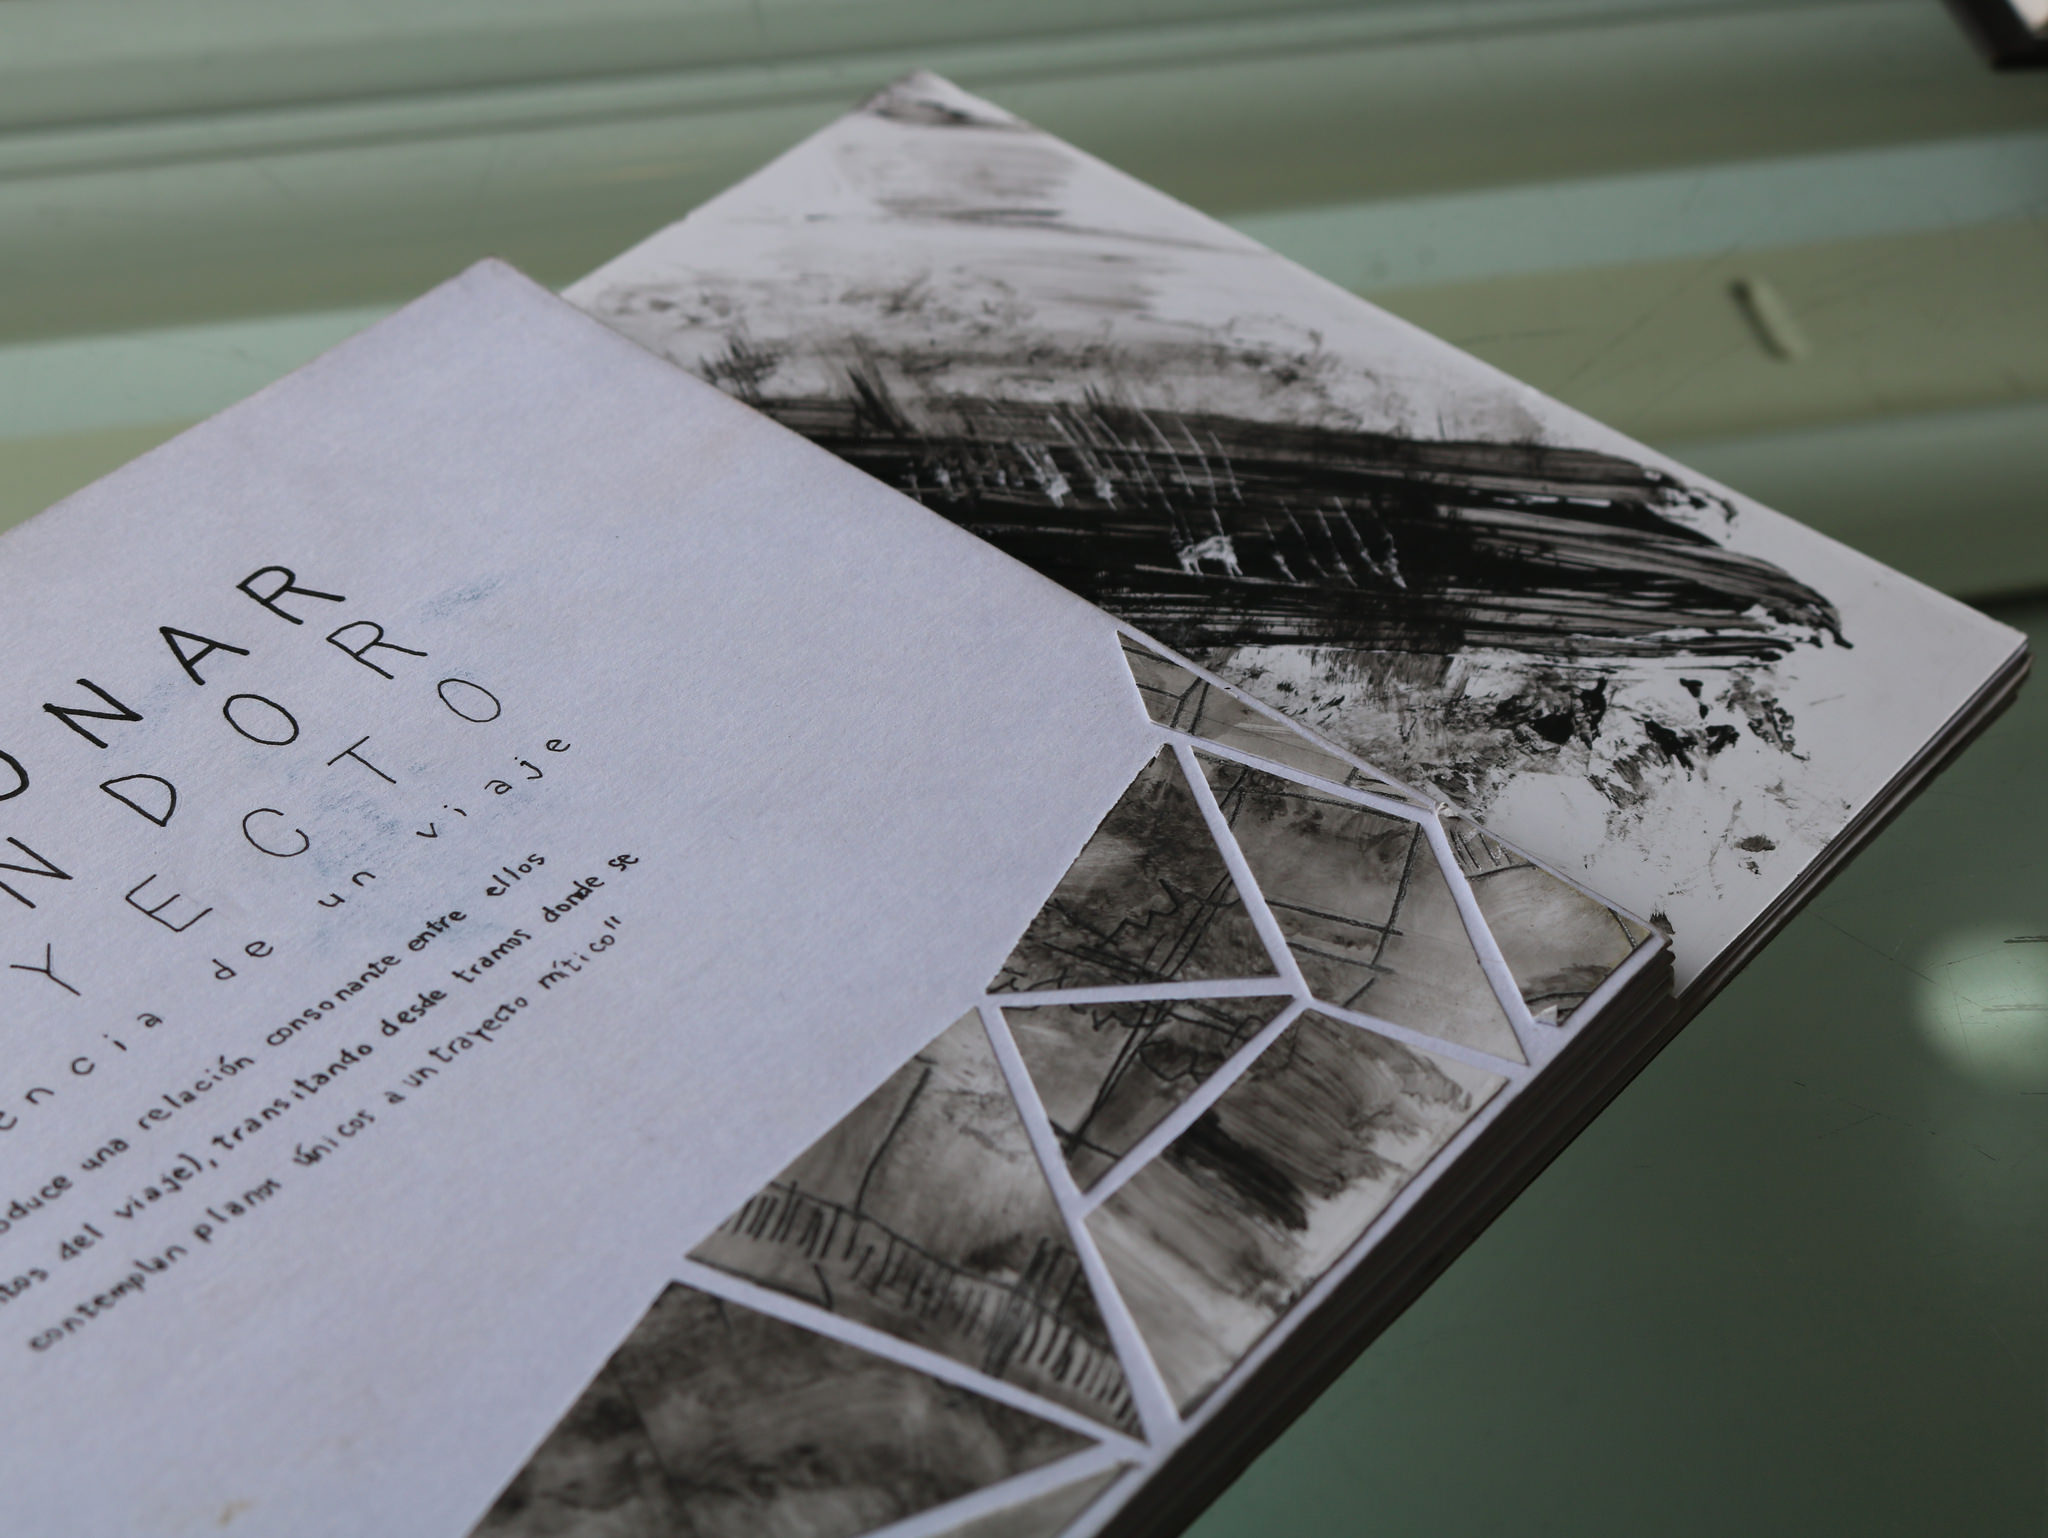 UNAR
NDOR
YECTO
encia de un viaje
oduce una relación consonante entre ellos
ntos del viaje), transitando desde tramos donde se
contemplan planos únicos a un trayecto mítico"